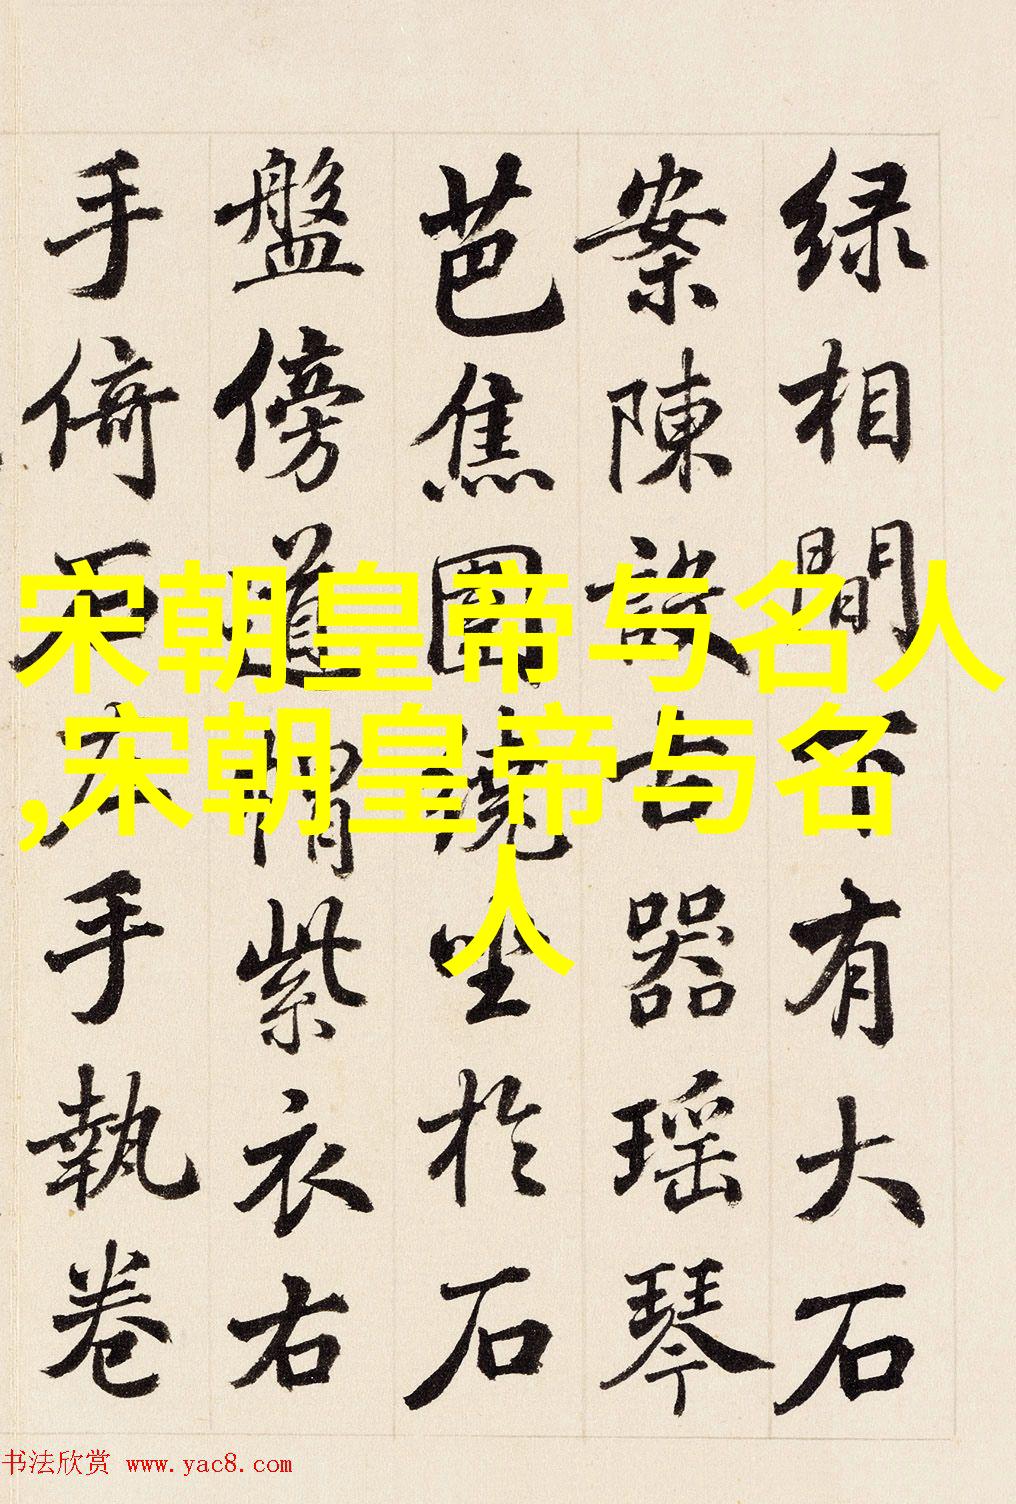 绿相間下有大石
案陳設古器瑶琴
芭焦圍繞坐於石
盤傍道帽紫衣右
手倚石左手執卷
宋朝皇帝与名人
,宋朝皇帝与名
人
书法欣赏 www.yac8.com